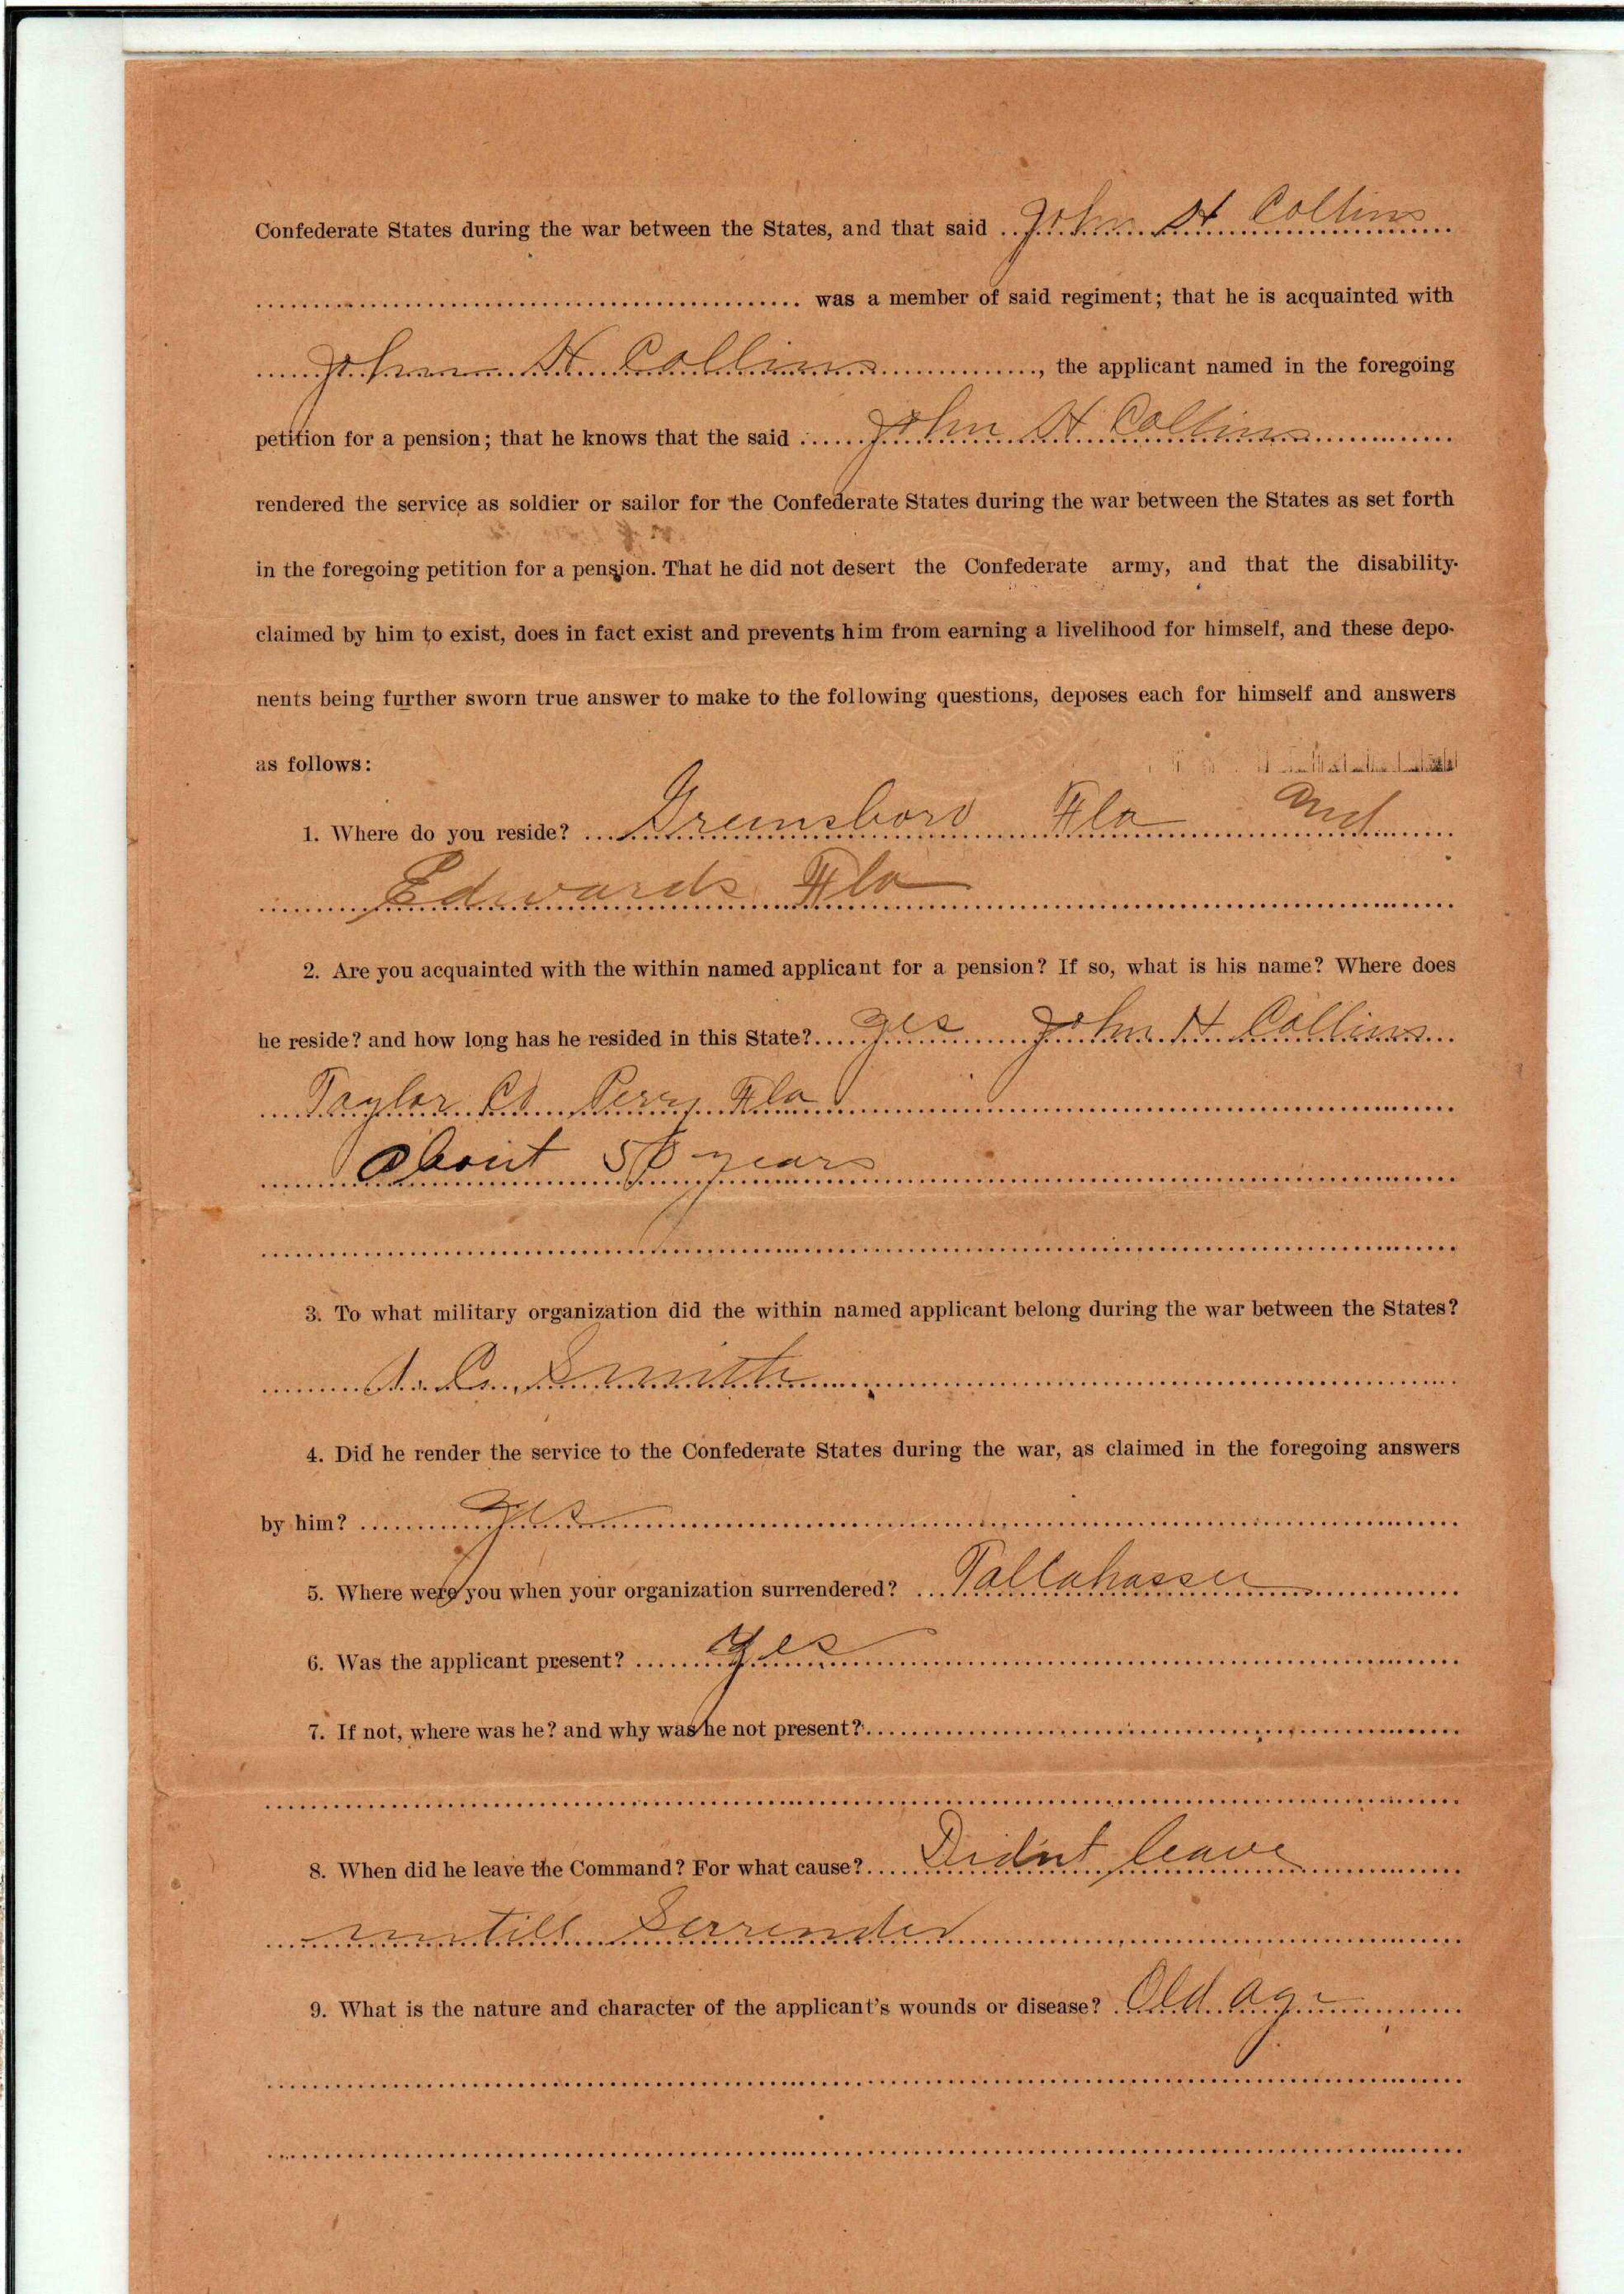 Confederate States during the war between the States, and that said John H Collins
was a member of said regiment; that he is acquainted with
John H Collins, the applicant named in the foregoing
petition for a pension; that he knows that the said John H Collins
rendered the service as soldier or sailor for the Confederate States during the war between the States as set forth
in the foregoing petition for a pension. That he did not desert the Confederate army, and that the disability
claimed by him to exist, does in fact exist and prevents him from earning a livelihood for himself, and these depo-
nents being further sworn true answer to make to the following questions, deposes each for himself and answers
as follows:
1. Where do you reside? Greensboro Fla and
Edwards Fla
2. Are you acquainted with the within named applicant for a pension? If so, what is his name? Where does
he reside? and how long has he resided in this State? yes John H Collins
Taylor Co Perry Fla
about 50 years
3. To what military organization did the within named applicant belong during the war between the States?
Smith
4. Did he render the service to the Confederate States during the war, as claimed in the foregoing answers
by him? yes
5. Where were you when your organization surrendered? Tallahassee
6. Was the applicant present? yes
7. If not, where was he? and why was he not present?
8. When did he leave the Command? For what cause? Didnt leave
untill Serrender
9. What is the nature and character of the applicant's wounds or disease? Old age